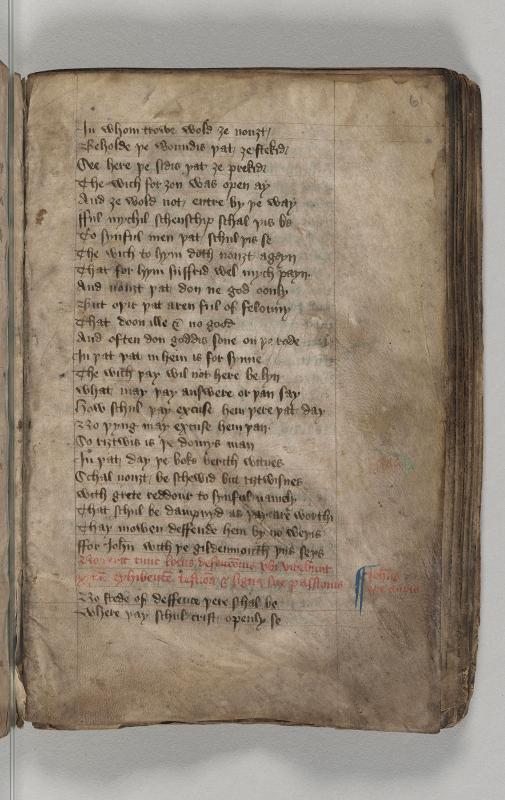 61
In whom trowe wold ȝe nouȝt
Beholde þe woundis þat ȝe stekid
See here þe sidis þat ȝe prekid
The wich for ȝou was open ay
And ȝe wold not entre by þe way
fful mychil schenschip schal þis be
To synful men þat schul þis se
The wich to hym doth nouȝt ageyn
That for hym suffrid wel mych payn
And nouȝt þat don ne god oonly
But oþir þat aren ful of felouny
That doon ille & no good
And often don goddis sone on þe rode
In þat þat in hem is for synne
The wich þay wil not here be lyn
What may þay answere or þan say
How schul þay excuse hem þere þat day
No þyng may excuse hem þan
So riȝtwis is þe domys man
In þat day þe boks berith witnes
Schal nouȝt be schewid but riȝtwisnes
With grete reddour to synful namely
That schul be dampnyd as þay are worthi
Thay mowen deffende hem by no weyis
ffor John with þe gildenmouth þus seys
Non erit tunc locus defencionis ubi videbunt
xpm exhibente testimonia & signa sue passionis
No stede of deffence þere schal be
Where þay schul crist openly se
Johns